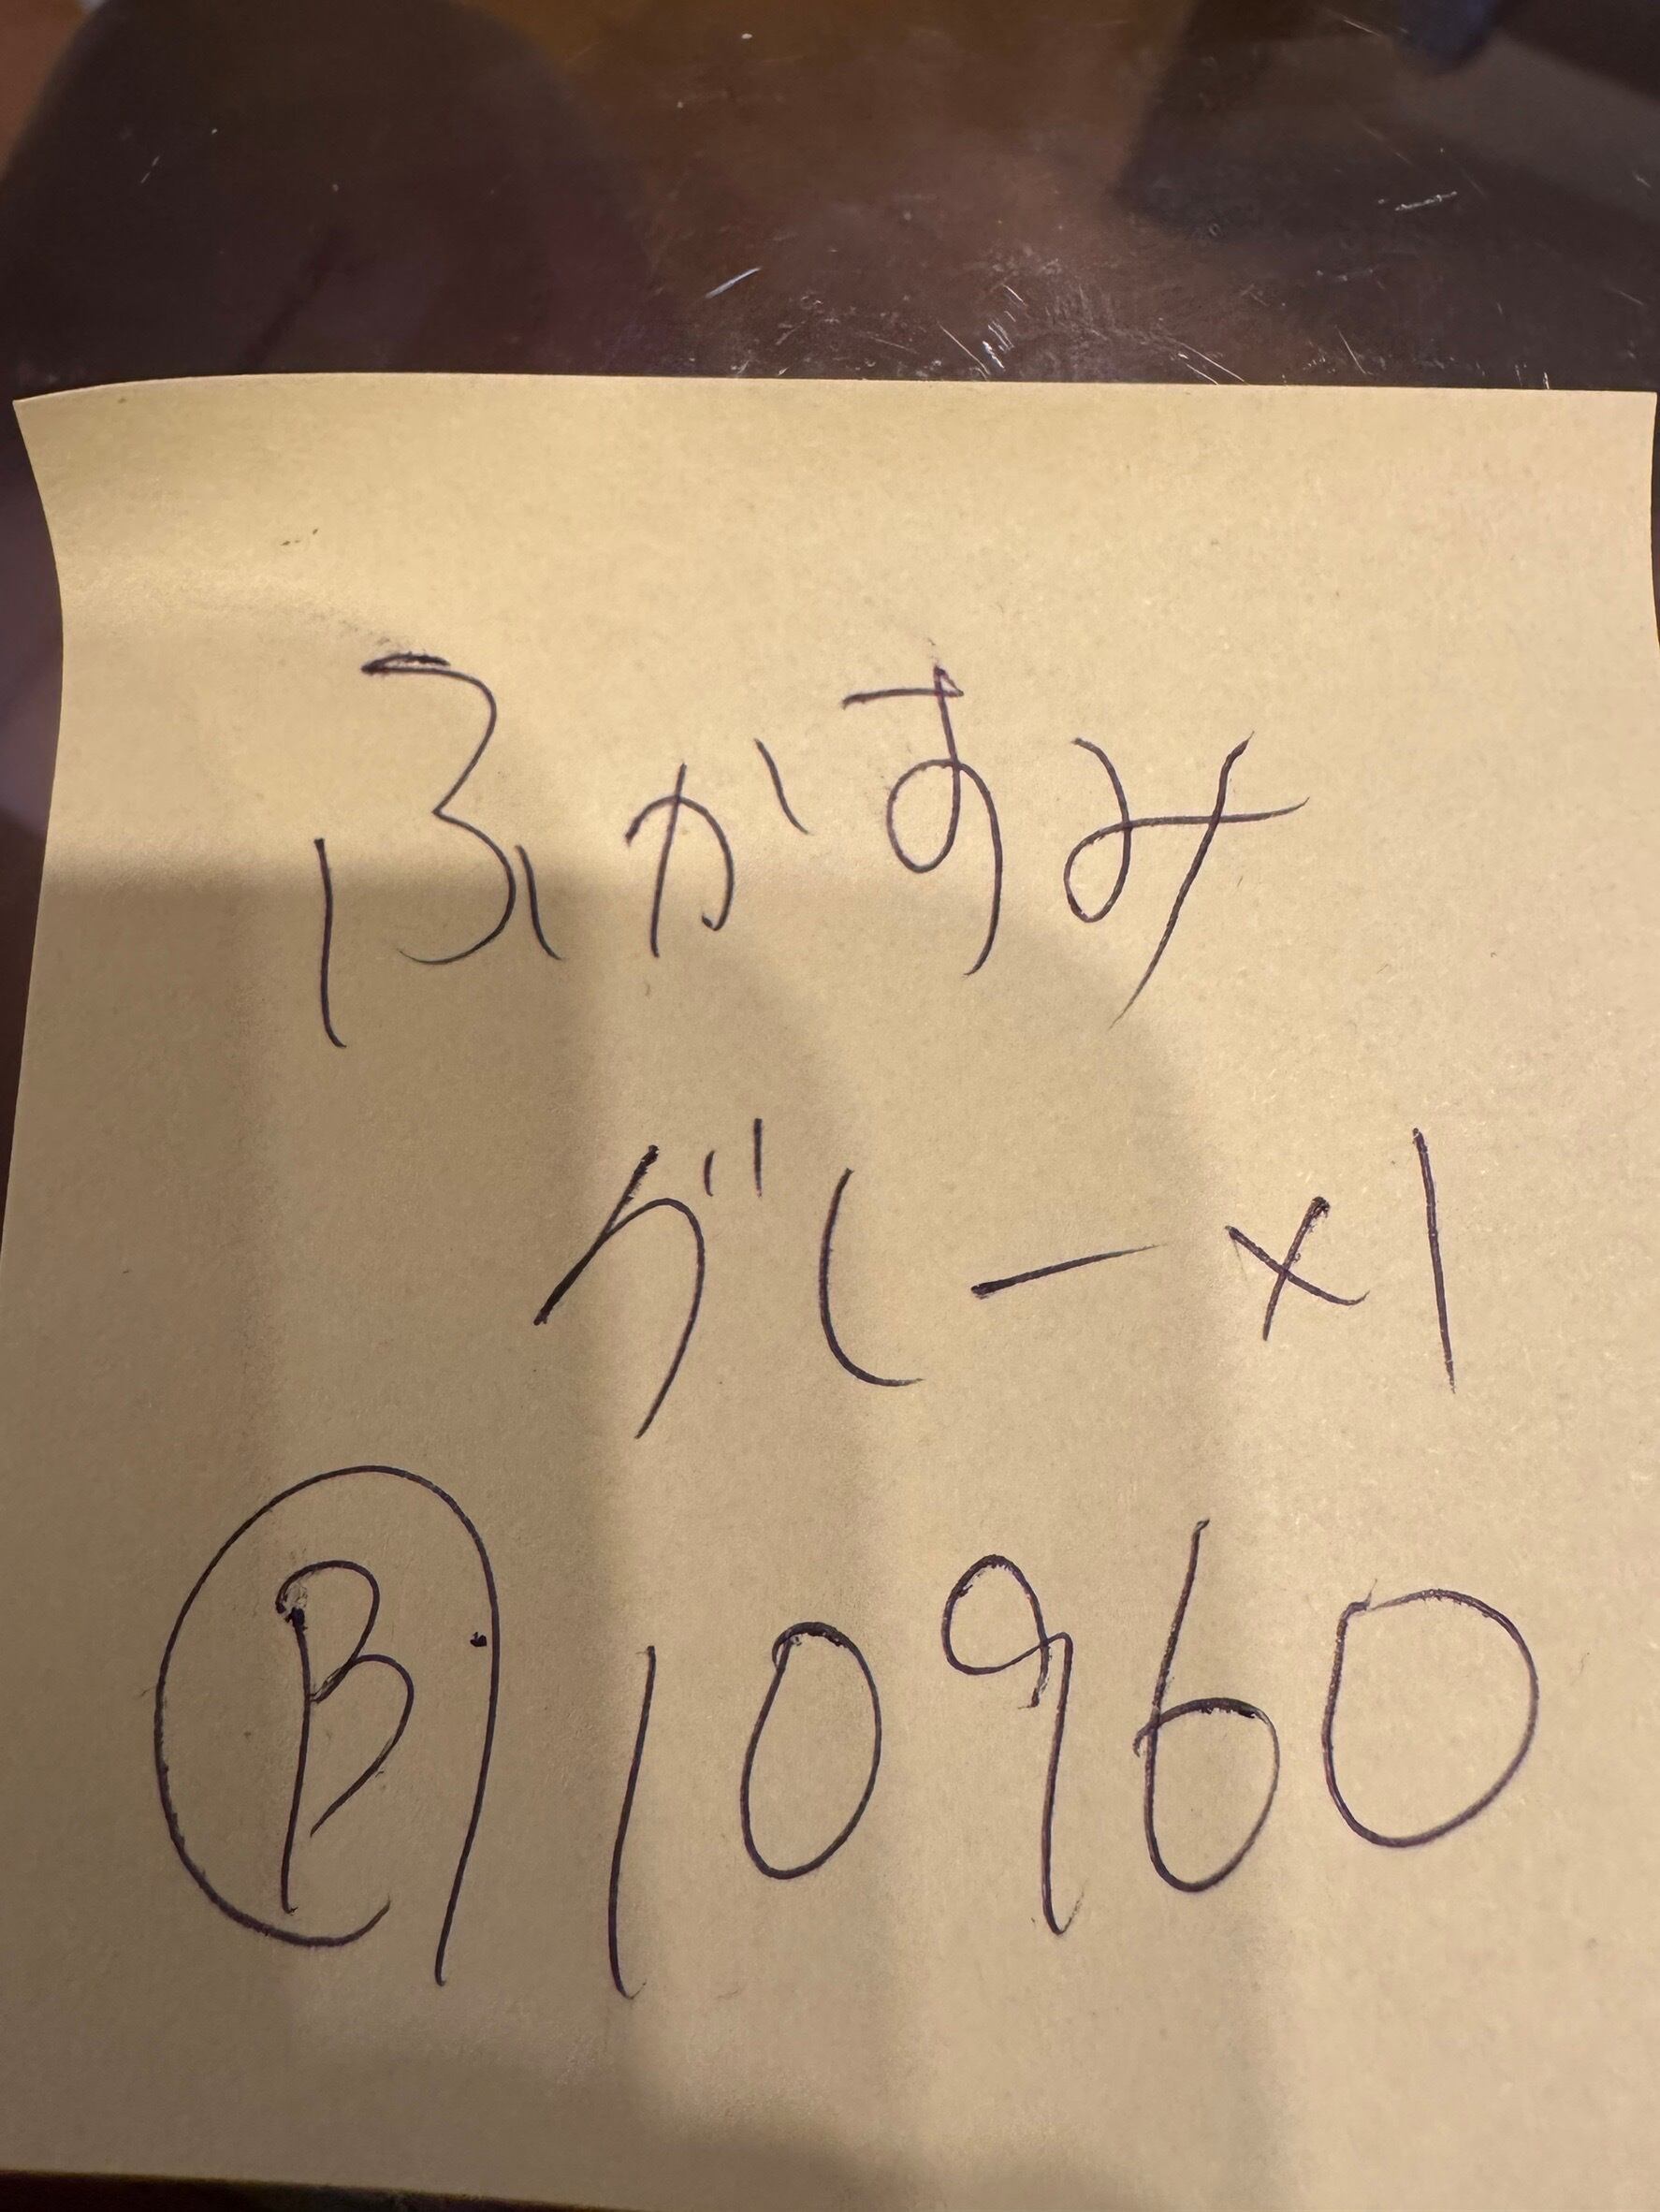 ふかすみ
グレー×1
Ⓑ10960